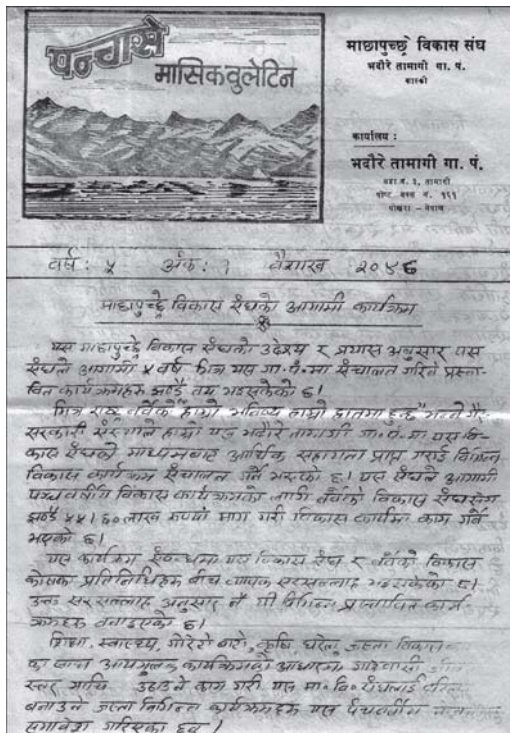 पन्चासे
मासिक वुलेटिन
माछापुच्छ्रे विकास संघ
भदौरे तामागी गा. पं.
कास्की
कार्यालय :
भदौरे तामागी गा. पं.
वडा नं. ३, तामागी
पोष्ट बक्स नं. १६१
पोखरा - नेपाल
वर्ष : ५ अंक : १ वैशाख २०४६
माछापुच्छ्रे विकास संघको आगामी कार्यक्रम
यस माछापुच्छ्रे विकास संघको उदेश्य र प्रयास अनुसार यस
संघले आगामी ५ वर्ष भित्र यस गा. पं. मा संचालन गरिने प्रस्ता-
वित कार्यक्रमहरू झण्डै तय भइसकेको छ।
मित्र राष्ट्र को हाम्रो भविष्य हाम्रो हातमा भन्ने गैर
सरकारी संस्थाले हाम्रो यस भदौरे तामागी गा. पं. मा यस वि-
कास संघको माध्यमबाट आर्थिक सहायता प्राप्त गराई विभिन्न
विकास कार्यक्रम संचालन गर्ने भएको छ। यस संघले आगामी
पञ्चवर्षीय विकास कार्यक्रमको लागी विकास संघसंग
झण्डै ५५।६० लाख रूपयाँ माग गरी विकास कार्यमा काम गर्ने
भएको छ।
यस कार्यक्रम संवन्धमा यस विकास संघ र विकास
कोषका प्रतिनिधिहरू बीच व्यापक सरसल्लाह भइसकेको छ।
उक्त सरसल्लाह अनुसार नै यी विभिन्न प्रस्तावित कार्य
क्रमहरू बनाइएको छ।
शिक्षा, स्वास्थ्य, गोरेटो बाटो, कृषि, घरेलु, विकास
का साथ आयमुलक कार्यक्रमको आधारमा गाउँवासी
स्तर माथि उठाउने काम गरी यस मा. वि. संघलाई
बनाउने विभिन्न कार्यक्रमहरू यस पंचवर्षीय
समावेश गरिएका छन्।